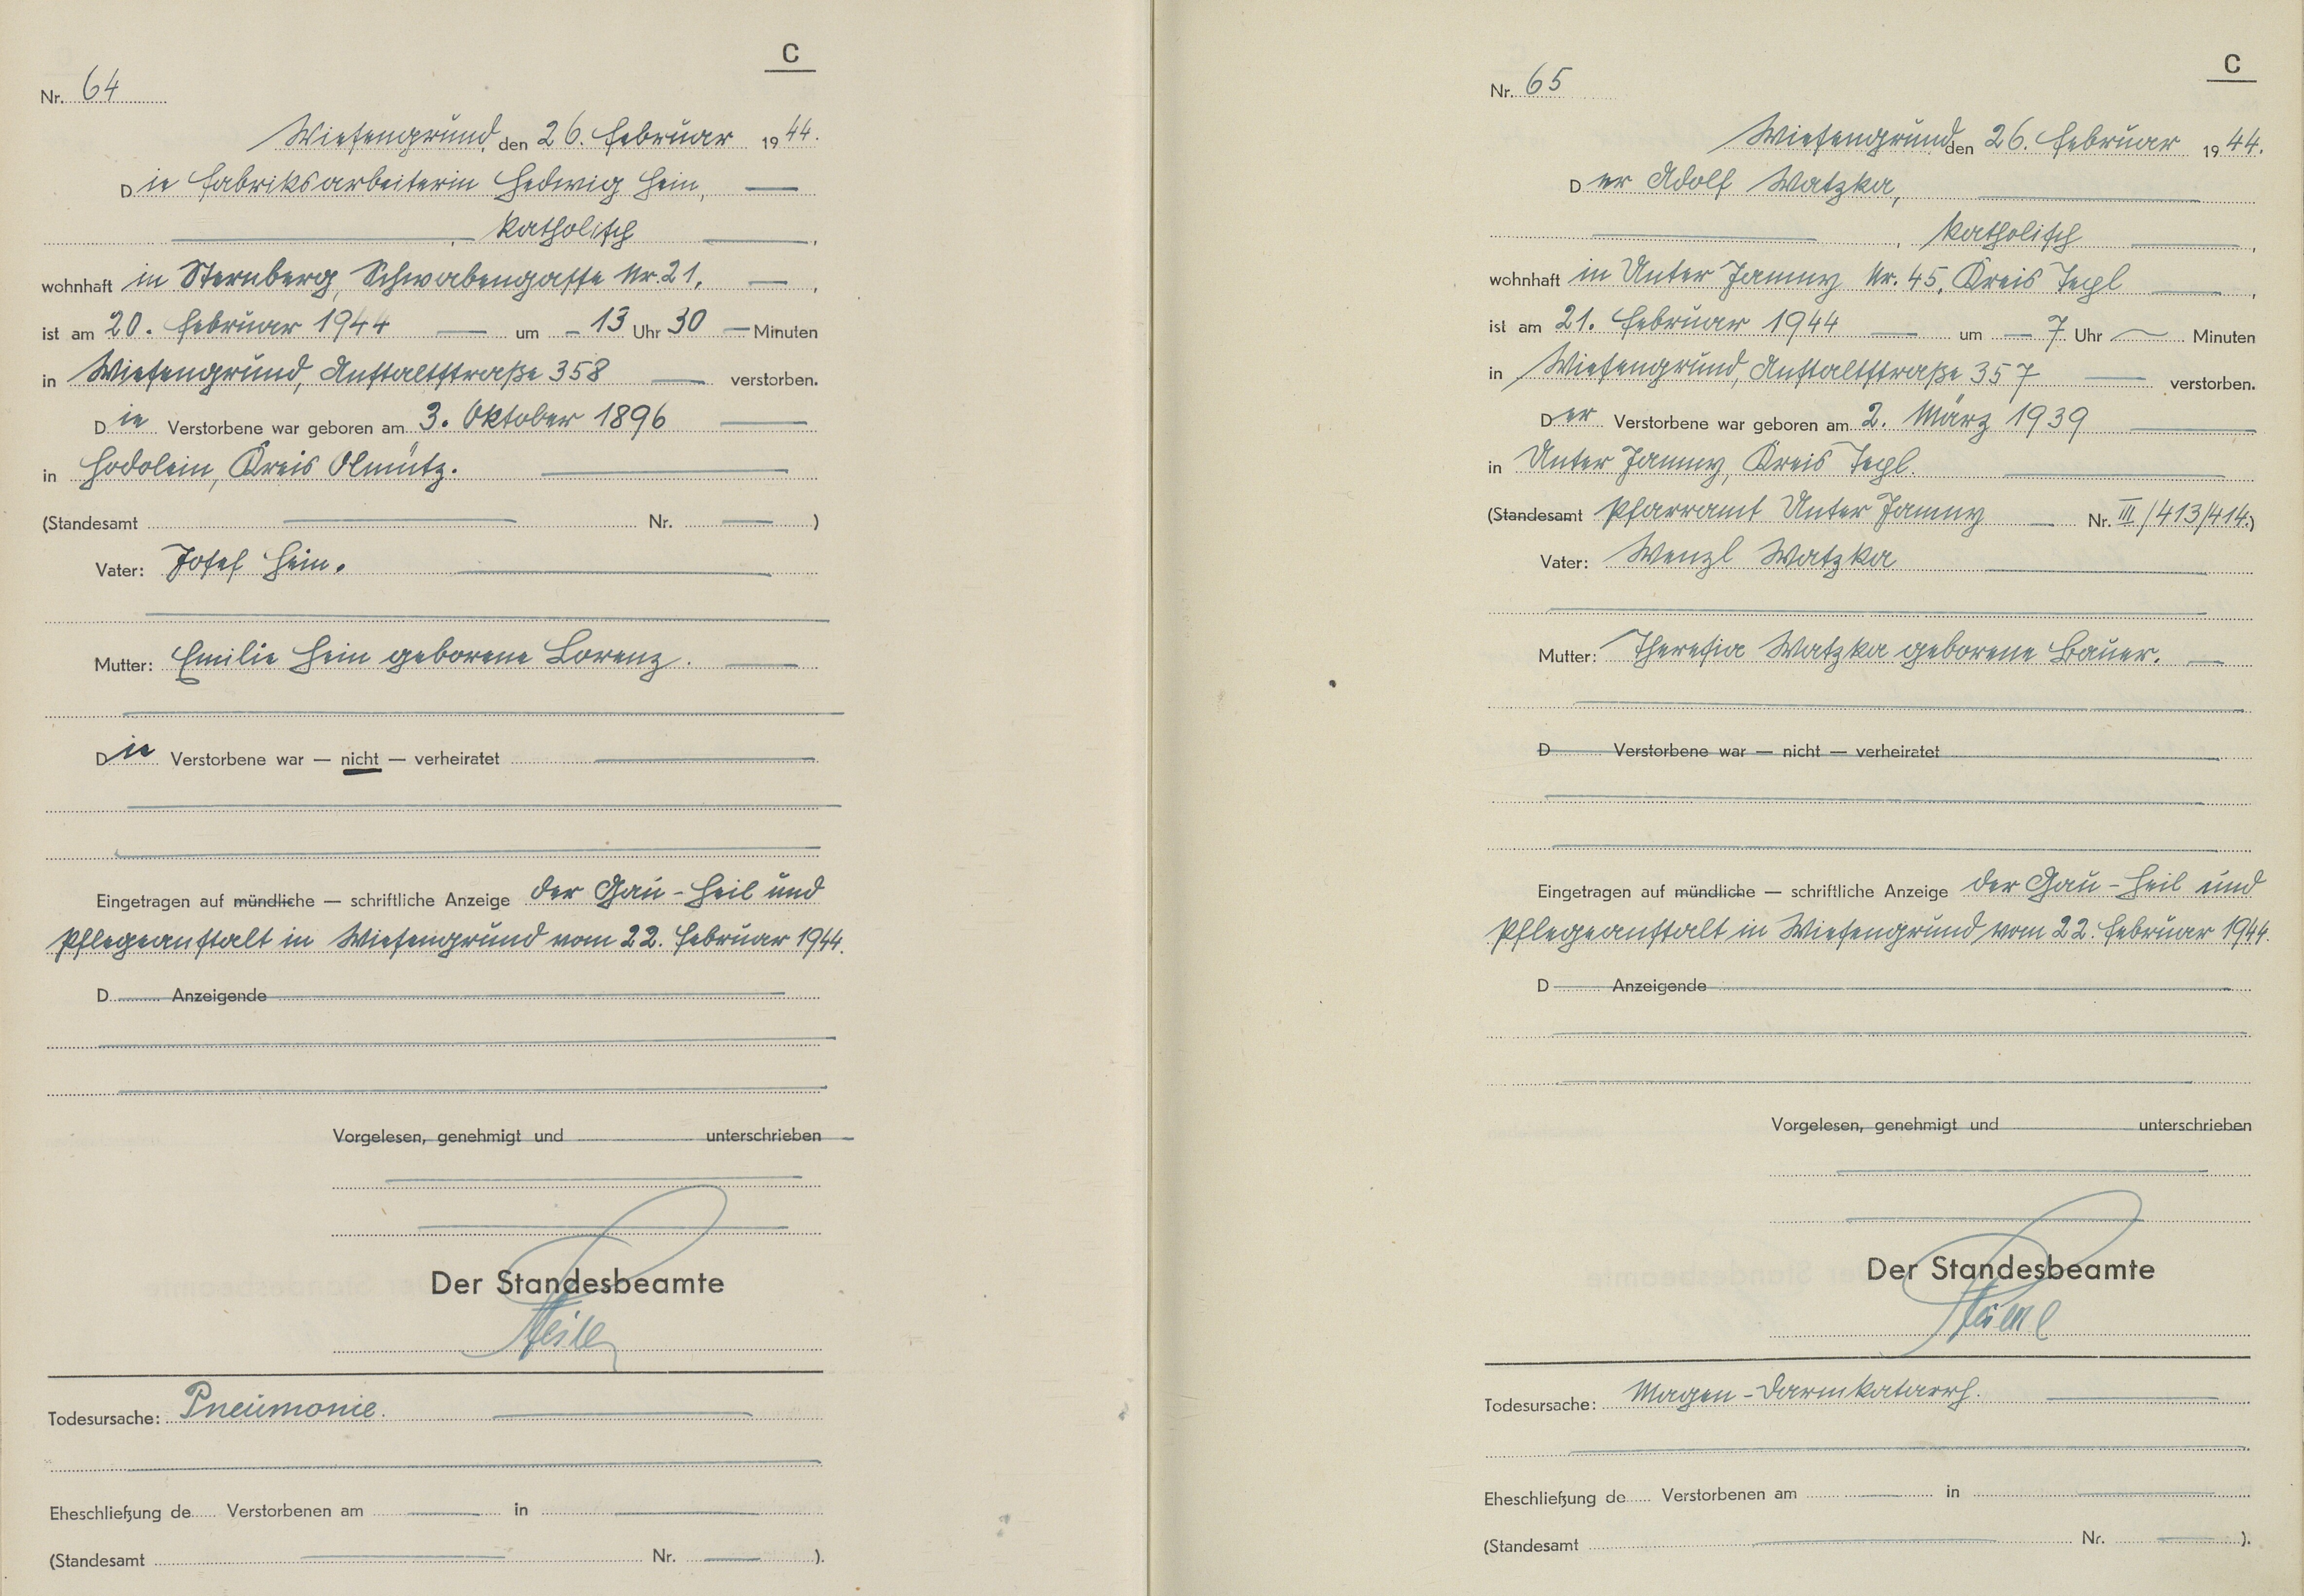 C
Nr. 64
Wiesengrund, den 26. Februar 1944.
Die Fabriksarbeiterin Hedwig Hein,
, katholisch ,
wohnhaft in Sternberg, Schwabengasse Nr. 21, ,
ist am 20. Februar 1944 um 13 Uhr 30 Minuten
in Wiesengrund, Anstaltstraße 358 verstorben.
Die Verstorbene war geboren am 3. Oktober 1896
in Hodolein, Kreis Olmütz.
(Standesamt Nr. )
Vater: Josef Hein.
Mutter: Emilie Hein geborene Lorenz.
Die Verstorbene war — nicht — verheiratet
Eingetragen auf mündliche — schriftliche Anzeige der Gau-Heil und
Pflegeanstalt in Wiesengrund vom 22. Februar 1944.
D Anzeigende
Vorgelesen, genehmigt und unterschrieben
Der Standesbeamte
Todesursache: Pneumonie.
Eheschließung de Verstorbenen am in
(Standesamt Nr. ).
C
Nr. 65
Wiesengrund den 26. Februar 1944.
Der Adolf Watzka,
, katholisch ,
wohnhaft in Unter Jamny Nr. 45, Kreis Tepl ,
ist am 21. Februar 1944 um 7 Uhr Minuten
in Wiesengrund, Anstaltstraße 357 verstorben.
Der Verstorbene war geboren am 2. März 1939
in Unter Jamny, Kreis Tepl.
(Standesamt Pfarramt Unter Jamny Nr. III/413/414.)
Vater: Wenzl Watzka
Mutter: Theresia Watzka geborene Bauer.
D Verstorbene war — nicht — verheiratet
Eingetragen auf mündliche — schriftliche Anzeige der Gau-Heil und
Pflegeanstalt in Wiesengrund vom 22. Februar 1944.
D Anzeigende
Vorgelesen, genehmigt und unterschrieben
Der Standesbeamte
Todesursache: Magen-Darmkatarrh.
Eheschließung de Verstorbenen am in
(Standesamt Nr. ).